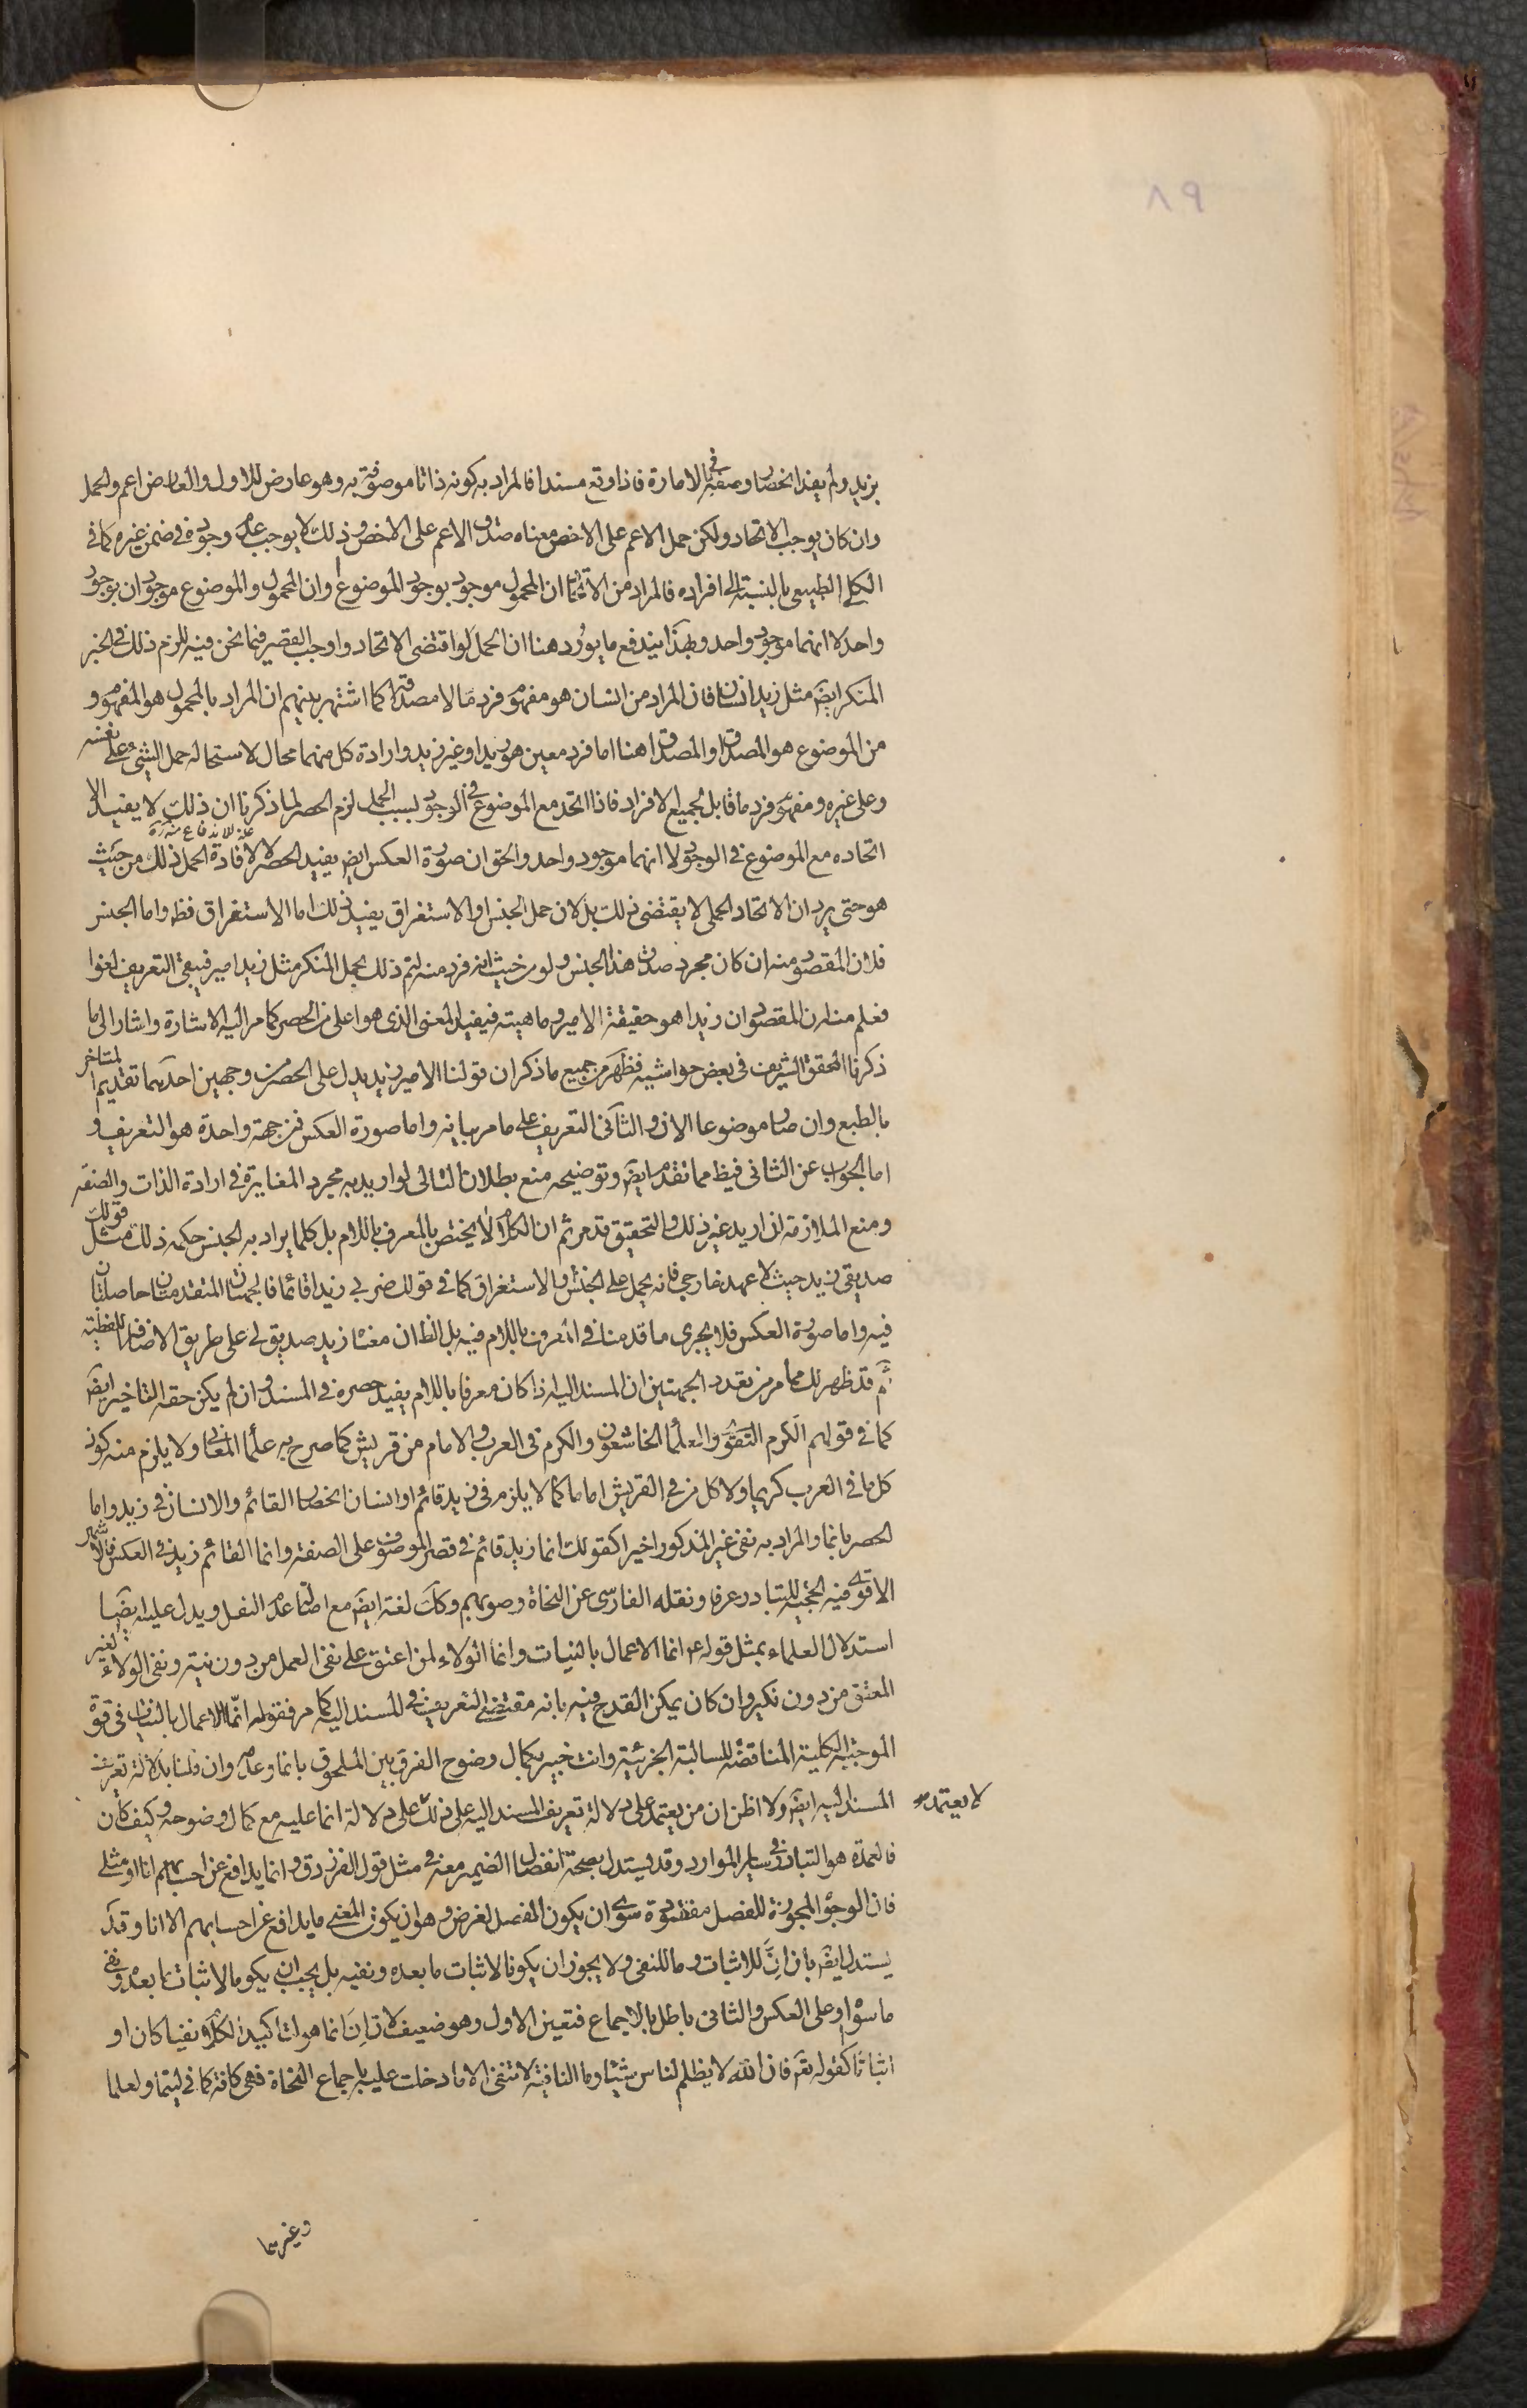 ٨٩
بزيد ولم يفد انحصار وصفه في الامارة فاذا وقع مسندا فالمراد به كونه ذاتا موصوفة به وهو عارض للاول والعارض اعم والحمل
وان كان يوجب الاتحاد ولكن حمل الاعم على الاخص معناه صدق الاعم على الاخص وذلك لا يوجب عدم وجوده في ضمن غيره كما في
الكلي الطبيعي بالنسبة الى افراده فالمراد من الاتحاد ان المحمول موجود بوجود الموضوع او ان المحمول والموضوع موجودان بوجود
واحد لا انهما موجود واحد وبهذا يندفع ما يورد هنا ان الحمل لو اقتضى الاتحاد واوجب القصر فيما نحن فيه للزم ذلك في الخبر
المنكر ايضا مثل زيد انسان فان المراد من انسان هو مفهوم فرد ما لا مصداقه كما اشتهر بينهم ان المراد بالمحمول هو المفهوم و
من الموضوع هو المصداق والمصداق هنا اما فرد معين هو زيد او غير زيد وارادة كل منهما محال لاستحالة حمل الشيء على نفسه
وعلى غيره ومفهوم فرد ما قابل لجميع الافراد فاذا اتحد مع الموضوع في الوجود بسبب الحمل لزم الحصر لما ذكرنا ان ذلك لا يفيد الا
اتحاده مع الموضوع في الوجود لا انهما موجود واحد والحق ان صورة العكس ايضا يفيد الحصر لا لافادة الحمل ذلك من حيث
هو حتى يرد ان الاتحاد الحملي لا يقتضى ذلك بل لان حمل الجنس او الاستغراق يفيد ذلك اما الاستغراق فظ واما الجنس
فلان المقصود منه ان كان مجرد صدق هذا الجنس ولو من حيث انه فرد منه لتم ذلك بحمل المنكر مثل زيد امير فيبقى التعريف لغوا
فعلم منه ان المقصود ان زيدا هو حقيقة الامير وماهيته فيفيد المعنى الذى هو اعلى من الحصر كما مر اليه الاشارة واشار الى ما
ذكرنا المحقق الشريف في بعض حواشيه فظهر من جميع ما ذكر ان قولنا الامير زيد يدل على الحصر من وجهين احدهما تقديم المتاخر
بالطبع وان صار موضوعا الان والثاني التعريف على ما مر بيانه واما صورة العكس فمن جهة واحدة هو التعريف و
اما الجواب عن الثاني فيظ مما تقدم ايضا وتوضيحه منع بطلان التالى لو اريد به مجرد المغايرة في ارادة الذات والصفة
ومنع الملازمة ان اريد غير ذلك والتحقيق قد مر ثم ان الكلام لا يختص بالمعرف باللام بل كلما يراد به الجنس حكمه ذلك مثل قولك
صديقي زيد حيث لا عهد خارجي فانه يحمل على الجنس والاستغراق كما في قولك ضربي زيدا قائما فالجهتان المتقدمتان حاصلتان
فيه واما صورة العكس فلا يجرى ما قدمنا في المعرف باللام فيه بل الظ ان معناه زيد صديق لي على طريق الاضافة اللفظية
ثم قد ظهر لك مما مر من تعدد الجهتين ان المسند اليه اذا كان معرفا باللام يفيد حصره في المسند وان لم يكن حقه التاخير ايضا
كما في قولهم الكرم التقوى والعلماء الخاشعون والكرم في العرب والامام من قريش كما صرح به علماء المعاني ولا يلزم منه كون
كل ما في العرب كريما ولا كل من في القريش اماما كما لا يلزم في زيد قائم او انسان انحصار القائم والانسان في زيد واما
الحصر بانما والمراد به نفى غير المذكور اخيرا كقولك انما زيد قائم في قصر الموصوف على الصفة وانما القائم زيد في العكس فالاشهر
الاقوى فيه الحجية للتبادر عرفا ونقله الفارسي عن النحاة وصوبهم وكك لغة ايضا مع اصالة عدم النقل ويدل عليه ايضا
استدلال العلماء بمثل قوله ع انما الاعمال بالنيات وانما الولاء لمن اعتق على نفى العمل من دون نية ونفى الولاء لغير
المعتق من دون نكير وان كان يمكن القدح فيه بانه مقتضى التعريف في المسند اليه كما مر فقوله انما الاعمال بالنيات في قوة
الموجبة الكلية المناقضة للسالبة الجزئية وانت خبير بكمال وضوح الفرق بين الملحوق بانما وعدمه وان قلنا بدلالة تعريف
المسند اليه ايضا ولا اظن ان من يعتمد على دلالة تعريف المسند اليه على ذلك على دلالة انما عليه مع كمال وضوحه وكيف كان
لا يعتمد
فالعمدة هو التبادر في ساير الموارد وقد يستدل بصحة انفصال الضمير معه في مثل قول الفرزدق وانما يدافع عن احسابهم انا او مثلى
فان الوجوه المجوزة للفصل مفقودة سوى ان يكون الفصل لغرض وهو ان يكون المعنى ما يدافع عن احسابهم الا انا وقد
يستدل ايضا بان انّ للاثبات وما للنفى ولا يجوز ان يكونا لاثبات ما بعده ونفيه بل يجب ان يكونا لاثبات ما بعده ونفى
ما سواه او على العكس والثانى باطل بالاجماع فتعين الاول وهو ضعيف لان انّ انما هو لتاكيد الكلام نفيا كان او
اثباتا كقوله تعم فان الله لا يظلم الناس شيئا وما النافية لا تنفى الا ما دخلت عليه باجماع النحاة فهى كافة كما في ليتما ولعلما
وغيرهما